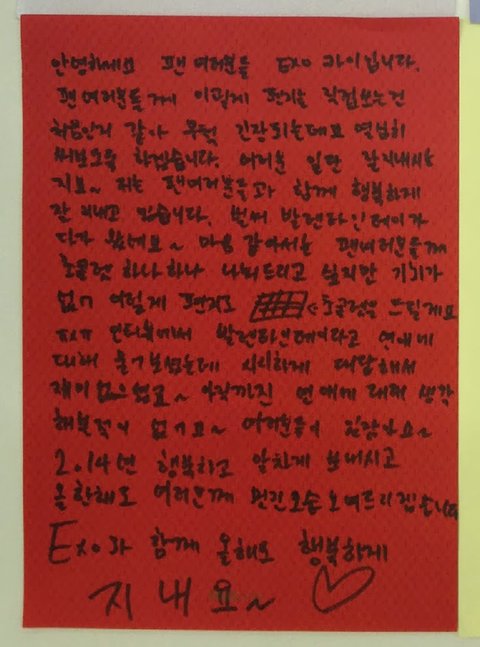 안녕하세요 팬 여러분들 EXO 카이입니다.
팬 여러분들께 이렇게 편지는 직접쓰는건
처음인거 같아 무척 긴장되는데요 열심히
써보도록 하겠습니다. 여러분 일단 잘지내시는
지요~ 저는 팬여러분들과 함께 행복하게
잘 지내고 있습니다. 벌써 발렌타인데이가
다가 왔네요~ 마음 같아서는 팬여러분들께
초콜렛 하나하나 나눠드리고 싶지만 기회가
없어 이렇게 편지로 초콜렛을 드릴게요
인터뷰에서 발렌타인데이라고 연애에
대해 물어보셨는데 시시하게 대답해서
재미 없으셨죠~ 아직까진 연애에 대해 생각
해본적이 없거든~ 여러분들이 있잖아요~
2014년 행복하고 알차게 보내시고
올 한해도 여러분께 멋진모습 보여드리겠습니다
EXO와 함께 올해도 행복하게
지내요~ ♡